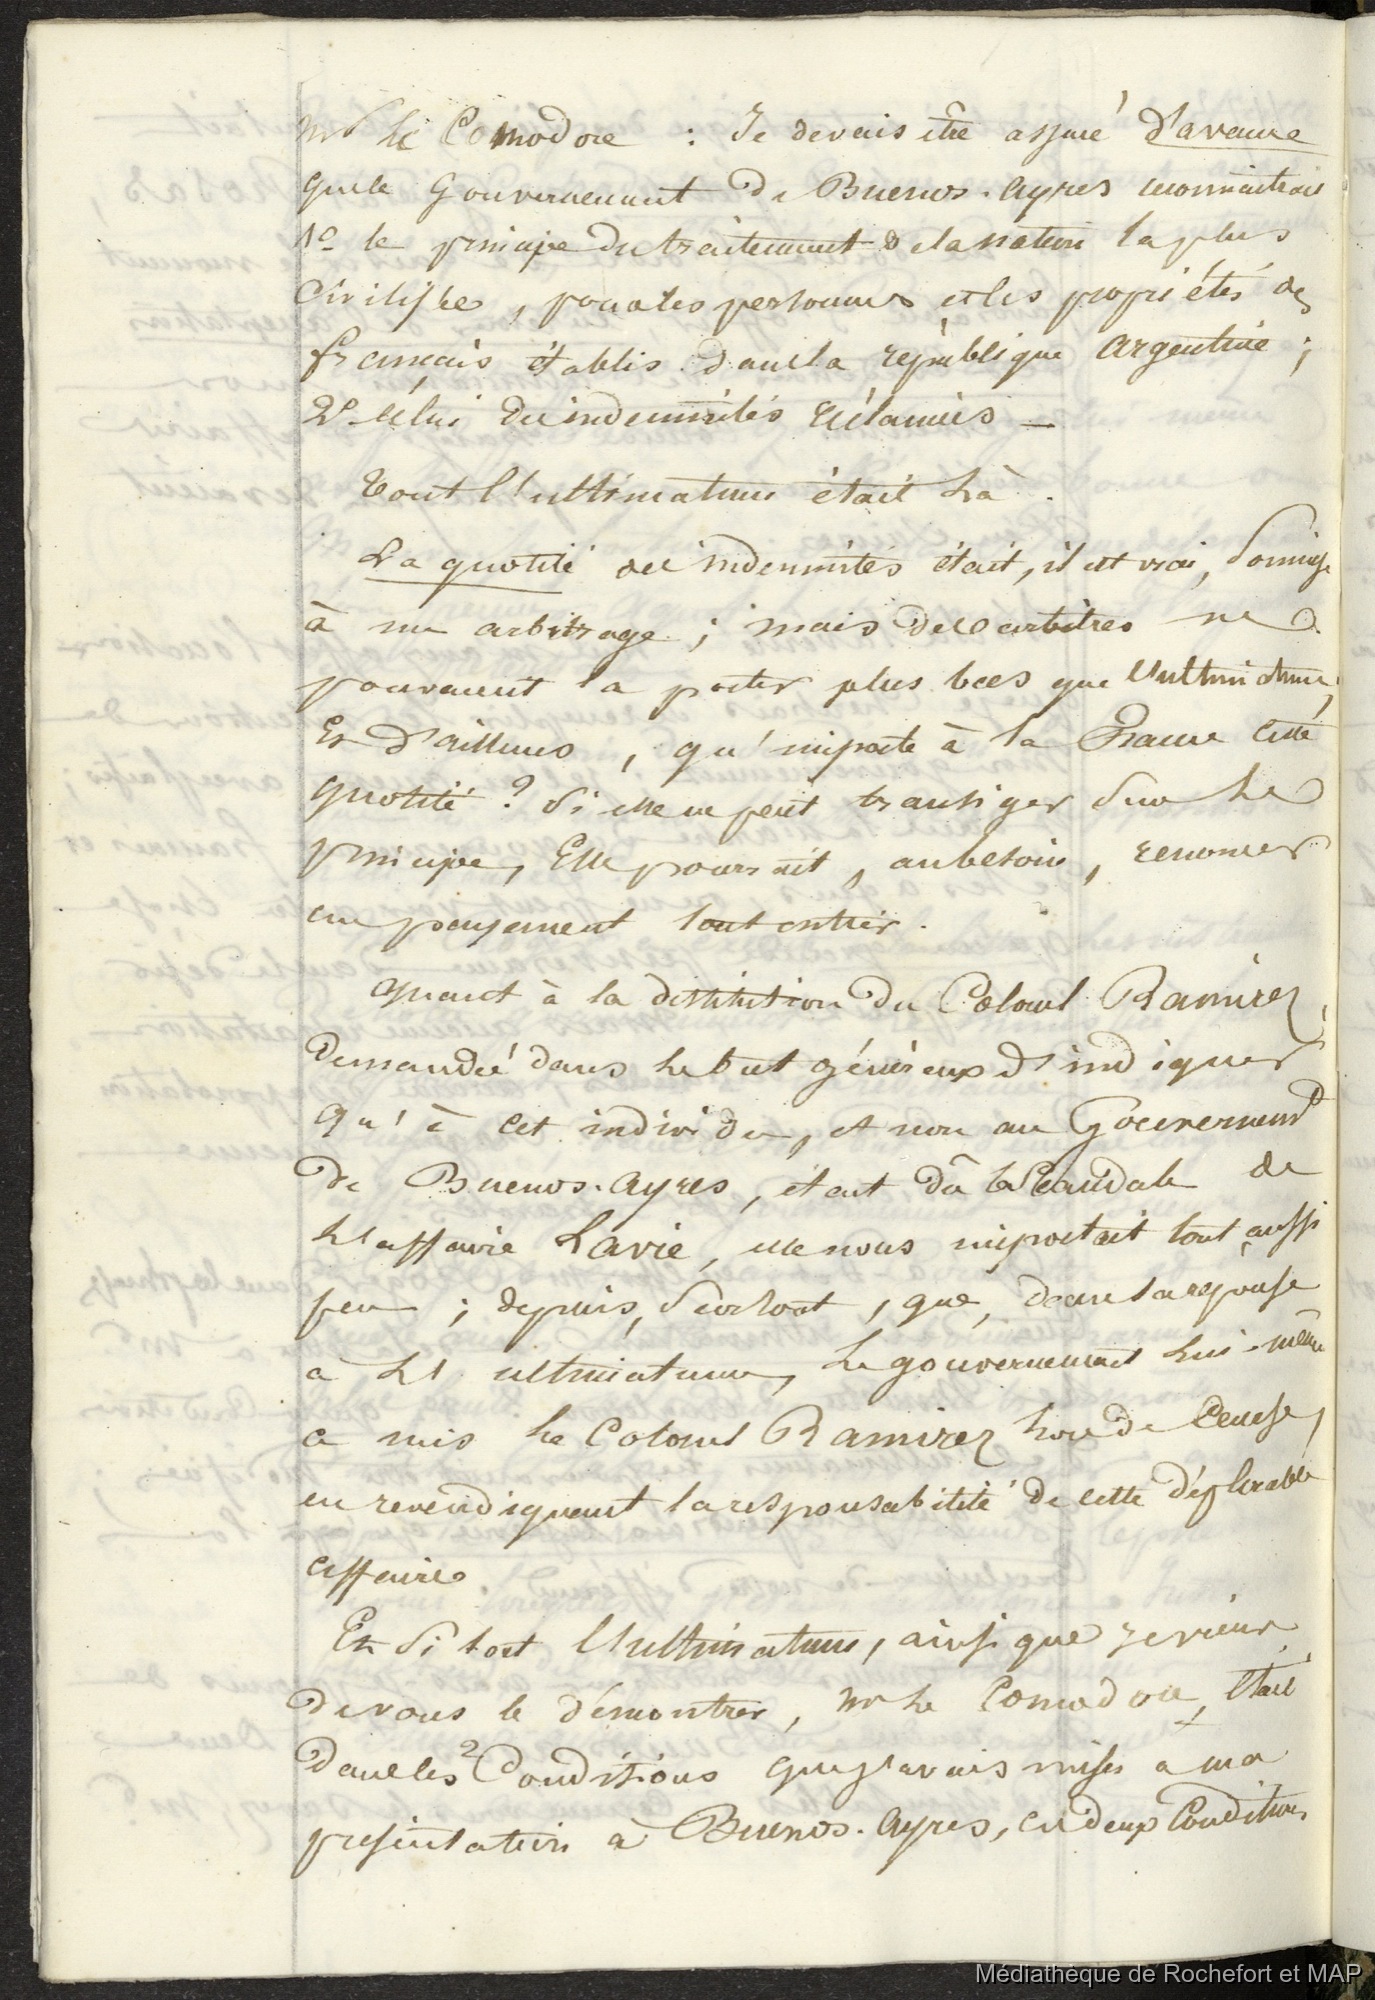 Mr le Comodore : Je devais être assuré d'avance
que le Gouvernement de Buenos-Ayres reconnaîtrait
1o le principe du traitement de la nation la plus
civilisée, pour les personnes et les propriétés des
français établis dans la république argentine ;
2o celui des indemnités réclamées —
Tout l'ultimatum était là.
La quotité des indemnités était, il est vrai, soumise
à un arbitrage ; mais des arbitres ne
pouvaient la porter plus bas que l'ultimatum ;
Et d'ailleurs, qu'importe à la France cette
quotité ? Si elle ne peut transiger sur le
principe, Elle pourrait, au besoin, renoncer
au payement tout entier.
quant à la destitution du Colonel Ramirez,
demandée dans le but généreux d'indiquer
qu'à cet individu, et non au Gouvernement
de Buenos-Ayres, était dû le scandale de
l'affaire Lavie, elle nous importait tout aussi
peu ; depuis, surtout, que, dans la réponse
a l'ultimatum, le gouvernement lui-même
a mis le Colonel Ramirez hors de Cause,
en revendiquant la responsabilité de cette déplorable
affaire.
Et si tout l'ultimatum, ainsi que je viens
de vous le démontrer, Mr le Comodore, était
dans les 2 Conditions que j'avais mises a ma
présentation à Buenos-Ayres, ces deux Conditions
Médiathèque de Rochefort et MAP